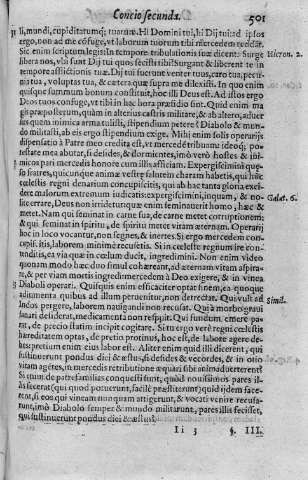 Concio secunda.
501
li, mundi, cupiditatumq; tuarum. Hi Domini tui, hi Dij tui: ad ipsos
ergo, non ad me cõfuge, vt laborum tuorum tibi mercedem reddãt.
Sic enim scriptum legis: In tempore tribulationis suæ dicent: Surge
Hieron. 2.
libera nos, vbi sunt Dij tui quos fecisti tibi? Surgant & liberent te in
tempore afflictionis tuæ. Dij tui fuerunt venter tuus, caro tua, pecunia
tua, voluptas tua, & cætera quæ supra me dilexisti. In quo enim
quisque summum bonum constituit, hoc illi Deus est. Ad istos ergo
Deos tuos confuge, vt tibi in hac hora præsidio sint. Quid enim magis
præposterum, quàm in alterius castris militare, & ab altero, aduersus
quem nimica arma tulisti, stipendium petere? Diabolo & mundo
militasti, ab eis ergo stipendium exige. Mihi enim solis operarijs
dispensatio à Patre meo credita est, vt mercedẽ tribuam: ideoq; potestate
mea abutar, si desides, & dormientes, imò verò hostes & inimicos
pari mercedis honore cum illis afficiam. Expergiscimini quæso
fratres, quicunque animæ vestræ salutem charam habetis, qui huic
cœlestis regni denarium concupiscitis, qui ab hac tanta gloria excidere
malorum extremum iudicatis: expergiscimini, inquam, & nolite
errare, Deus non irridetur: quæ enim seminauerit homo, hæc &
Galat. 6.
metet. Nam qui seminat in carne sua, de carne metet corruptionem:
& qui seminat in spiritu, de spiritu metet vitam æternam. Operarij
hoc in loco vocantur, non segnes, & inertes. Si ergo mercedem concupiscitis,
laborem minimè recusetis. Si in cœleste regnum ire contenditis,
ea via quæ in cœlum ducit, ingredimini. Non enim video
quonam modo hæc duo simul cohæreant, vt ad æternam vitam aspiretis,
& per viam mortis ingredi: mercedem à Deo exigere, & in vinea
Diaboli operari. Quisquis enim efficaciter optat finem, ea quoque
adiumenta quibus ad illum peruenitur, non detrectat. Qui vult ad
Simil.
Indos pergere, laborem nauigandi non recusat. Qui à morbo grauí
sanari desiderat, medicamenta non respuit. Qui fundum emere parat,
de precio statim incipit cogitare. Si tu ergo verè regni cœlestis
hæreditatem optas, de pretio protinus, hoc est, de labore agere debes:
pretium enim eius labor est. Aliter enim quid illi dicerent, qui
sustinuerunt pondus diei & æstus, si desides & vecordes, & in otio
vitam agẽtes, in mercedis retributione æquari sibi animaduerterent?
Si enim de patrefamilias conquesti sunt, quòd nouissimis pares illos
fecerat (qui quod potuerunt, facilè præstiterant) quid ijdem facerent,
si eos qui vineam nunquam attigerunt, & vocati venire recusarunt,
imò Diabolo semper & mundo militarunt, pares illis fecisset,
qui sustinuerunt pondus diei & æstus?
Ii 3
§. III.